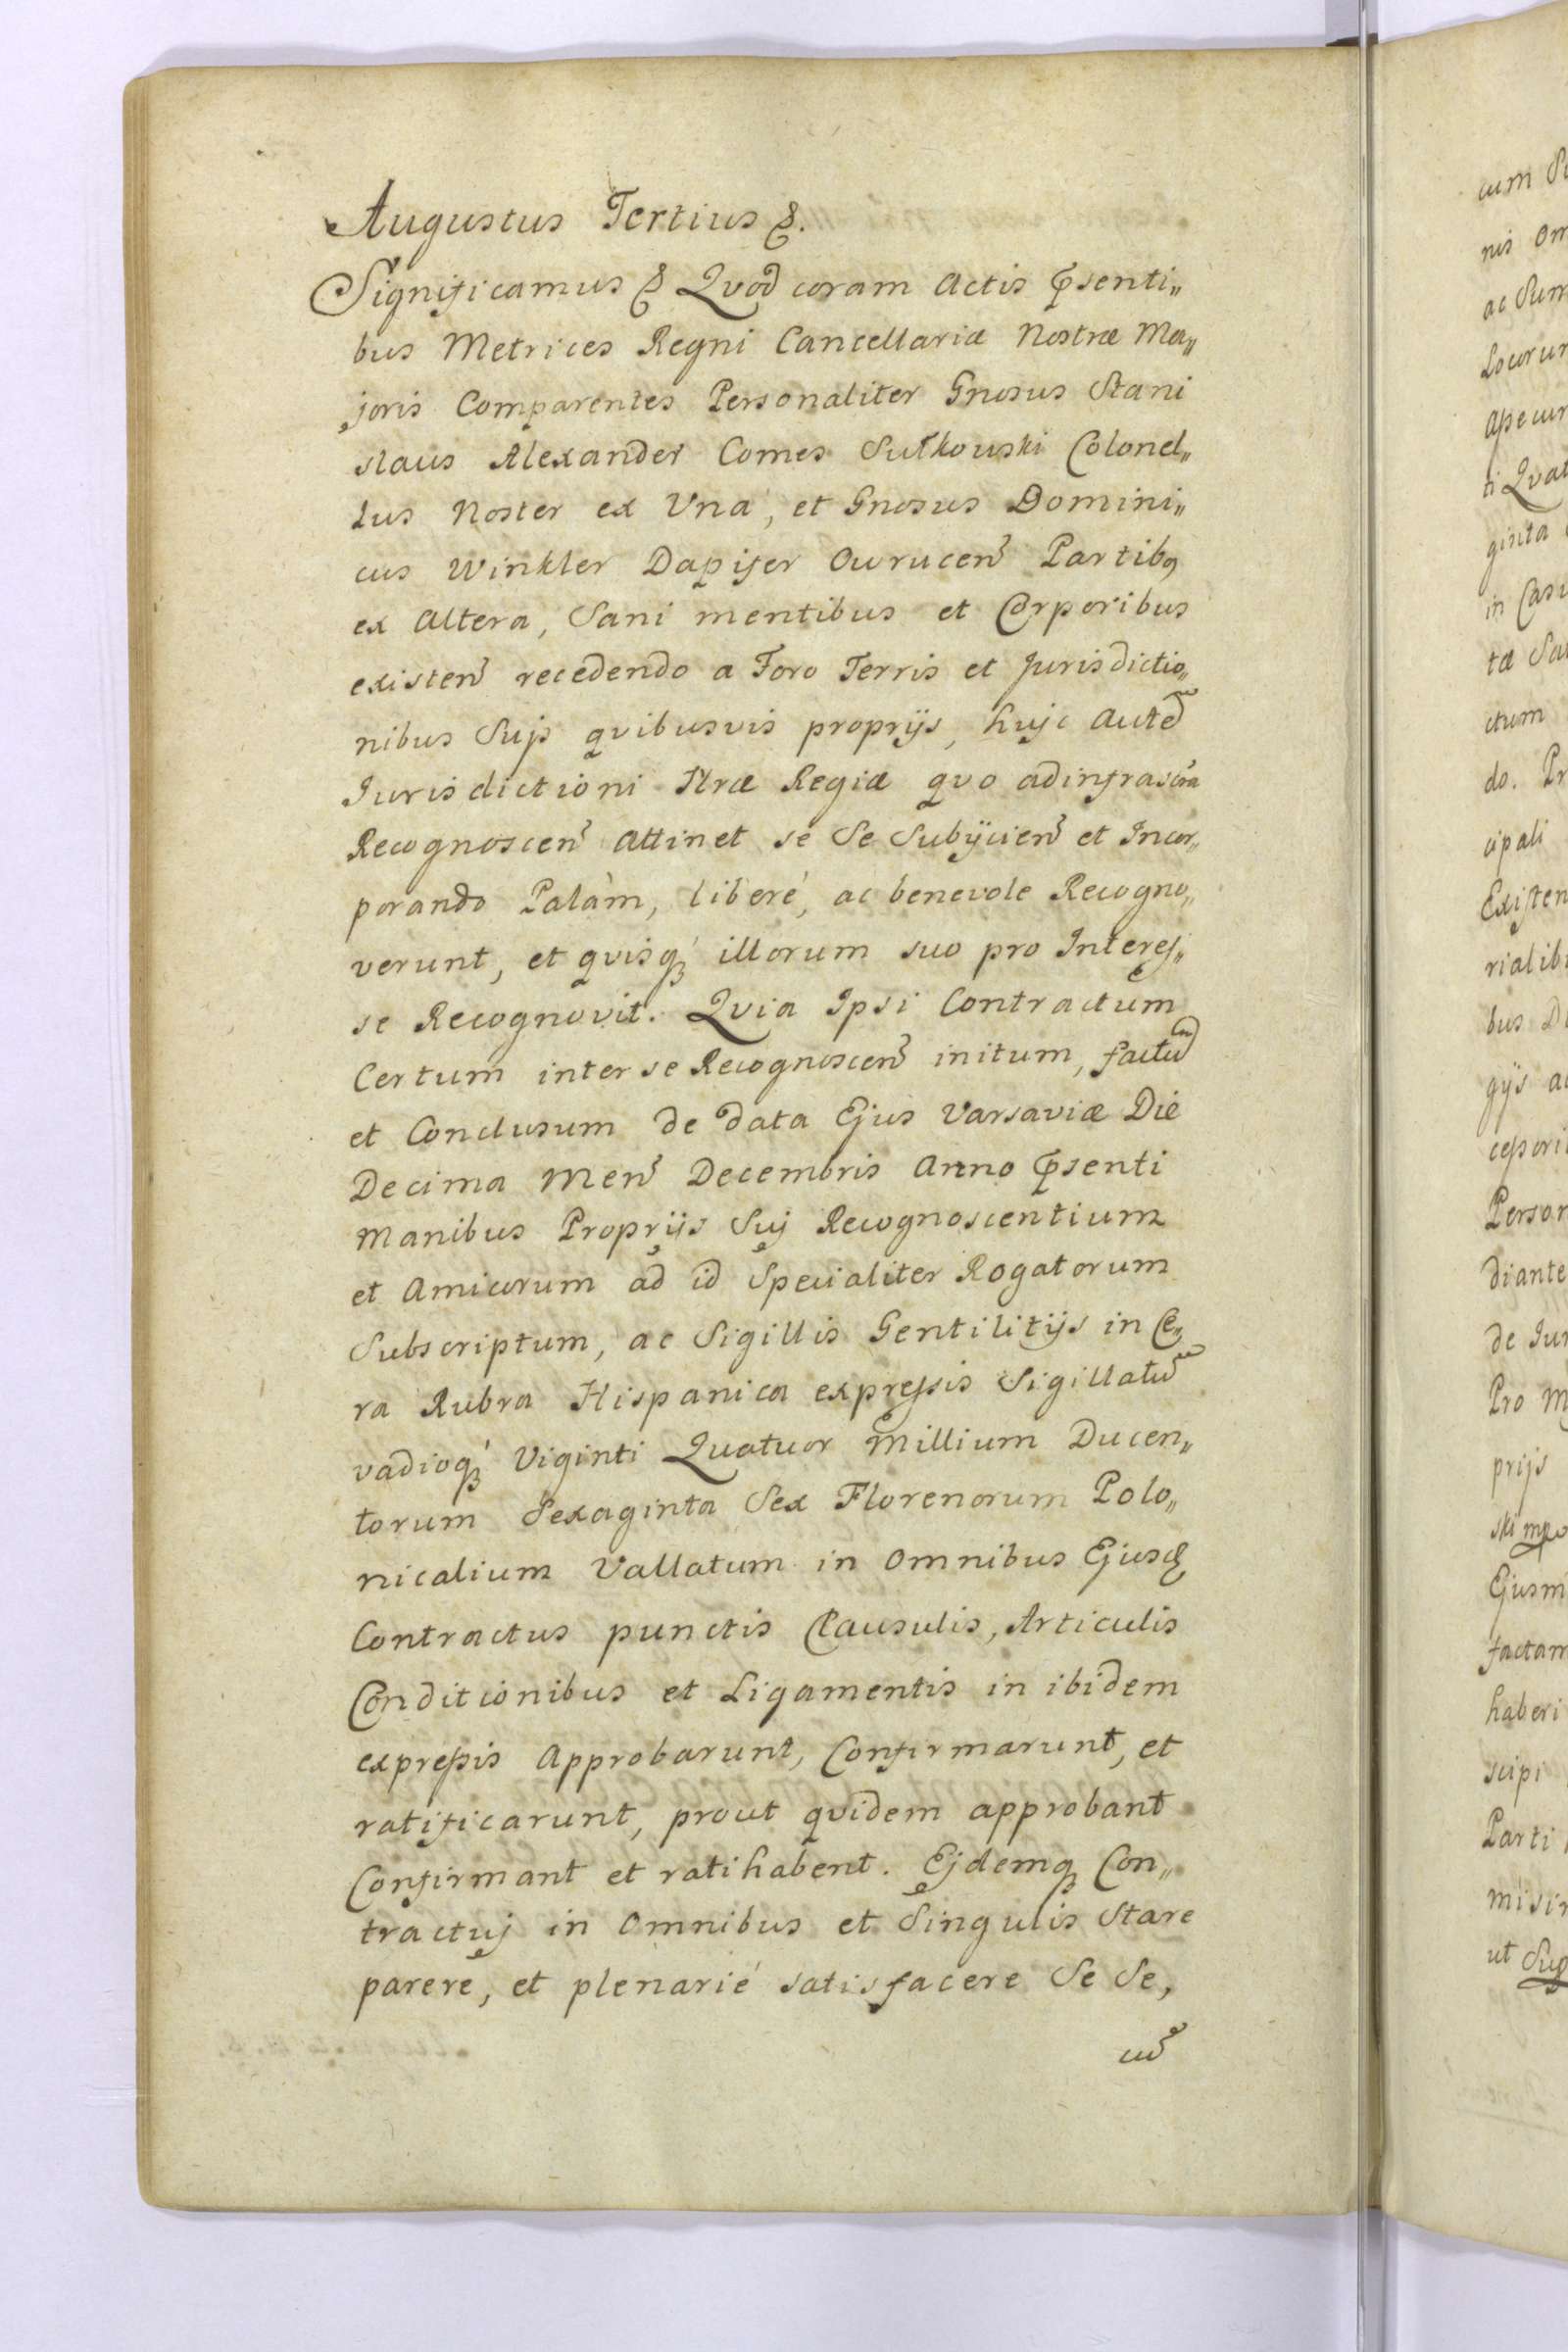 Augustus Tertius &.
Significamus & Qvod coram Actis Psenti„
bus Metrices Regni Cancellariæ Nostræ Ma„
joris Comparentes Personaliter Gnosus Stani
slaus Alexander Comes Sułkouski Colonel„
lus Noster ex Vna, et Gnosus Domini„
cus Winkler Dapifer Owrucen̄ Partibꝰ
ex Altera, Sani mentibus et Corporibus
existen̄ recedendo a Foro Terris et Jurisdictio„
nibus Sujs qvibusvis proprijs, hujc Autē
Jurisdictioni Nræ Regiæ qvo ad infrascra
Recognoscen̄ Attinet se Se Subijcien̄ et Incor„
porando Palàm, liberé, ac benevole Recogno„
verunt, et qvisqꝫ illorum suo pro Interes„
se Recognovit. Qvia Ipsi Contractum
Certum inter se Recognoscen̄ initum, factū
et Conclusum de data Ejus Varsaviæ Die
Decima Men̄ Decembris Anno Psenti
Manibus Proprijs Suj Recognoscentium
et Amicorum ad id Specialiter Rogatorum
Subscriptum, ac Sigillis Gentilitijs in Ce„
ra Rubra Hispanica expressis Sigillatū
vadioqꝫ Viginti Quatuor Millium Ducen„
torum Sexaginta Sex Florenorum Polo„
nicalium Vallatum in Omnibus Ejusd
Contractus punctis Clausulis, Articulis
Conditionibus et Ligamentis in ibidem
expressis Approbarunt, Confirmarunt, et
ratificarunt, prout qvidem approbant
Confirmant et ratihabent. Ejdemqꝫ Con„
tractuj in Omnibus et Singulis Stare
parere, et plenarié satisfacere Se Se,
cū
cum
nis
ac Sum
Locorum
ti Qvat
ginta
in Casu
tæ
ctum
do. Pr
cipali
Existen
rialib
bus D
gijs
Person
diante
de Jur
Pro M
prijs
ski mpp
Ejusm
factam
haberi
scipi
Parti
misi
ut Sup